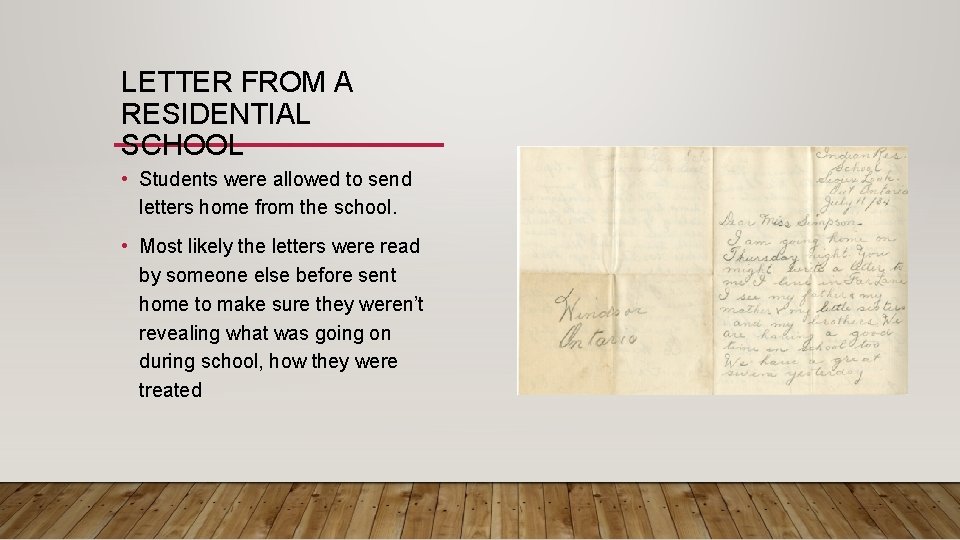 LETTER FROM A
RESIDENTIAL
SCHOOL
• Students were allowed to send
letters home from the school.
• Most likely the letters were read
by someone else before sent
home to make sure they weren’t
revealing what was going on
during school, how they were
treated
Windsor
Ontario
Indian Res.
School
Sioux Look.
Ont Ontario
July 11/34
Dear Miss Simpson-
I am going home on
Thursday night. You
might write a letter to
me I live in
I see my father & my
mother & my little sisters
and my brothers. We
are having a good
time in school too
We have a great
swim yesterday